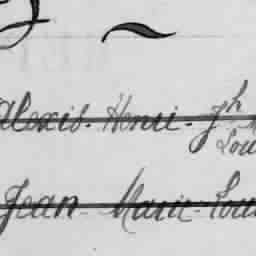 Alexis. Henri. Jh
Lou
Jean - Marie - Loui